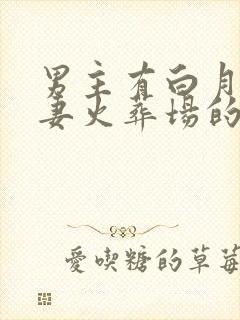 男主有白月
妻火葬場的
愛喫糖的草莓